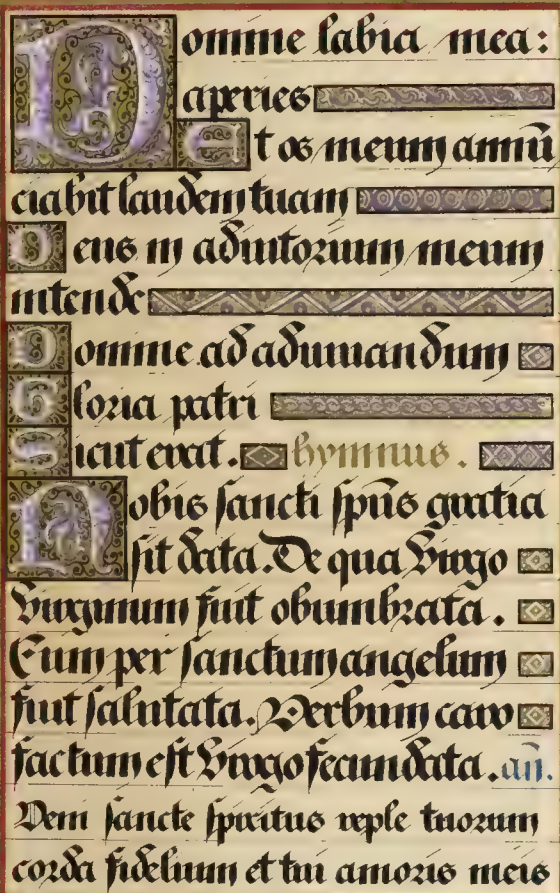 Domine labia mea:
aperies
Et os meum annū
ciabit laudem tuam
Deus in adiutorium meum
intende
Domine ad adiuuandum
Gloria patri
Sicut erat. hymnus.
Nobis sancti spūs gratia
sit data. De qua virgo
virginum fuit obumbrata.
Cum per sanctum angelum
fuit salutata. Verbum caro
factum est virgo fecundata. añ.
Veni sancte spiritus reple tuorum
corda fidelium et tui amoris meis